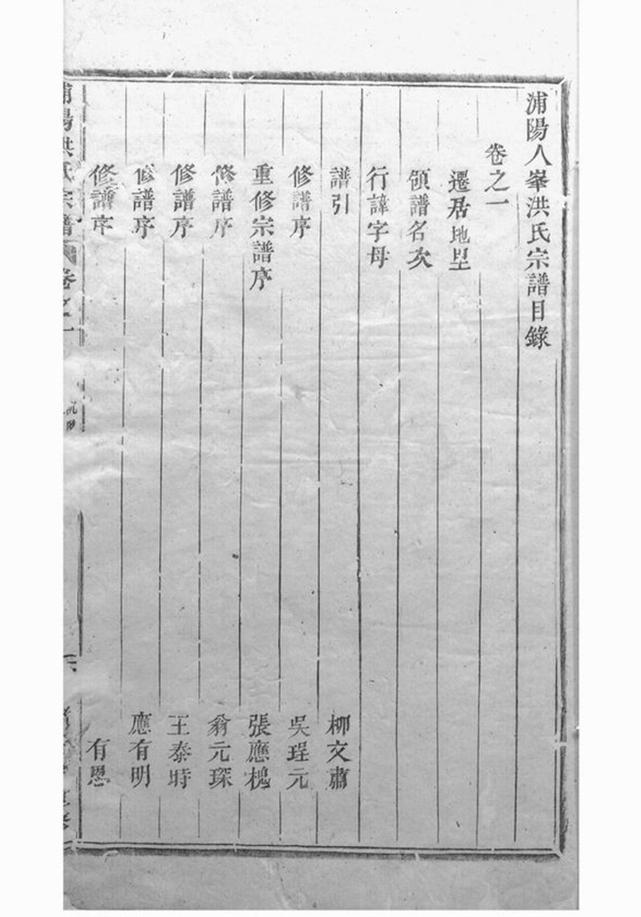 浦陽人峯洪氏宗譜目錄
卷之一
遷居地里
領譜名次
行諱字母
譜引 柳文肅
修譜序 吳珵元
重修宗譜序 張應槐
修譜序 翁元琛
修譜序 王泰時
修譜序 應有明
修譜序 有恩
浦陽洪氏宗譜 卷之一